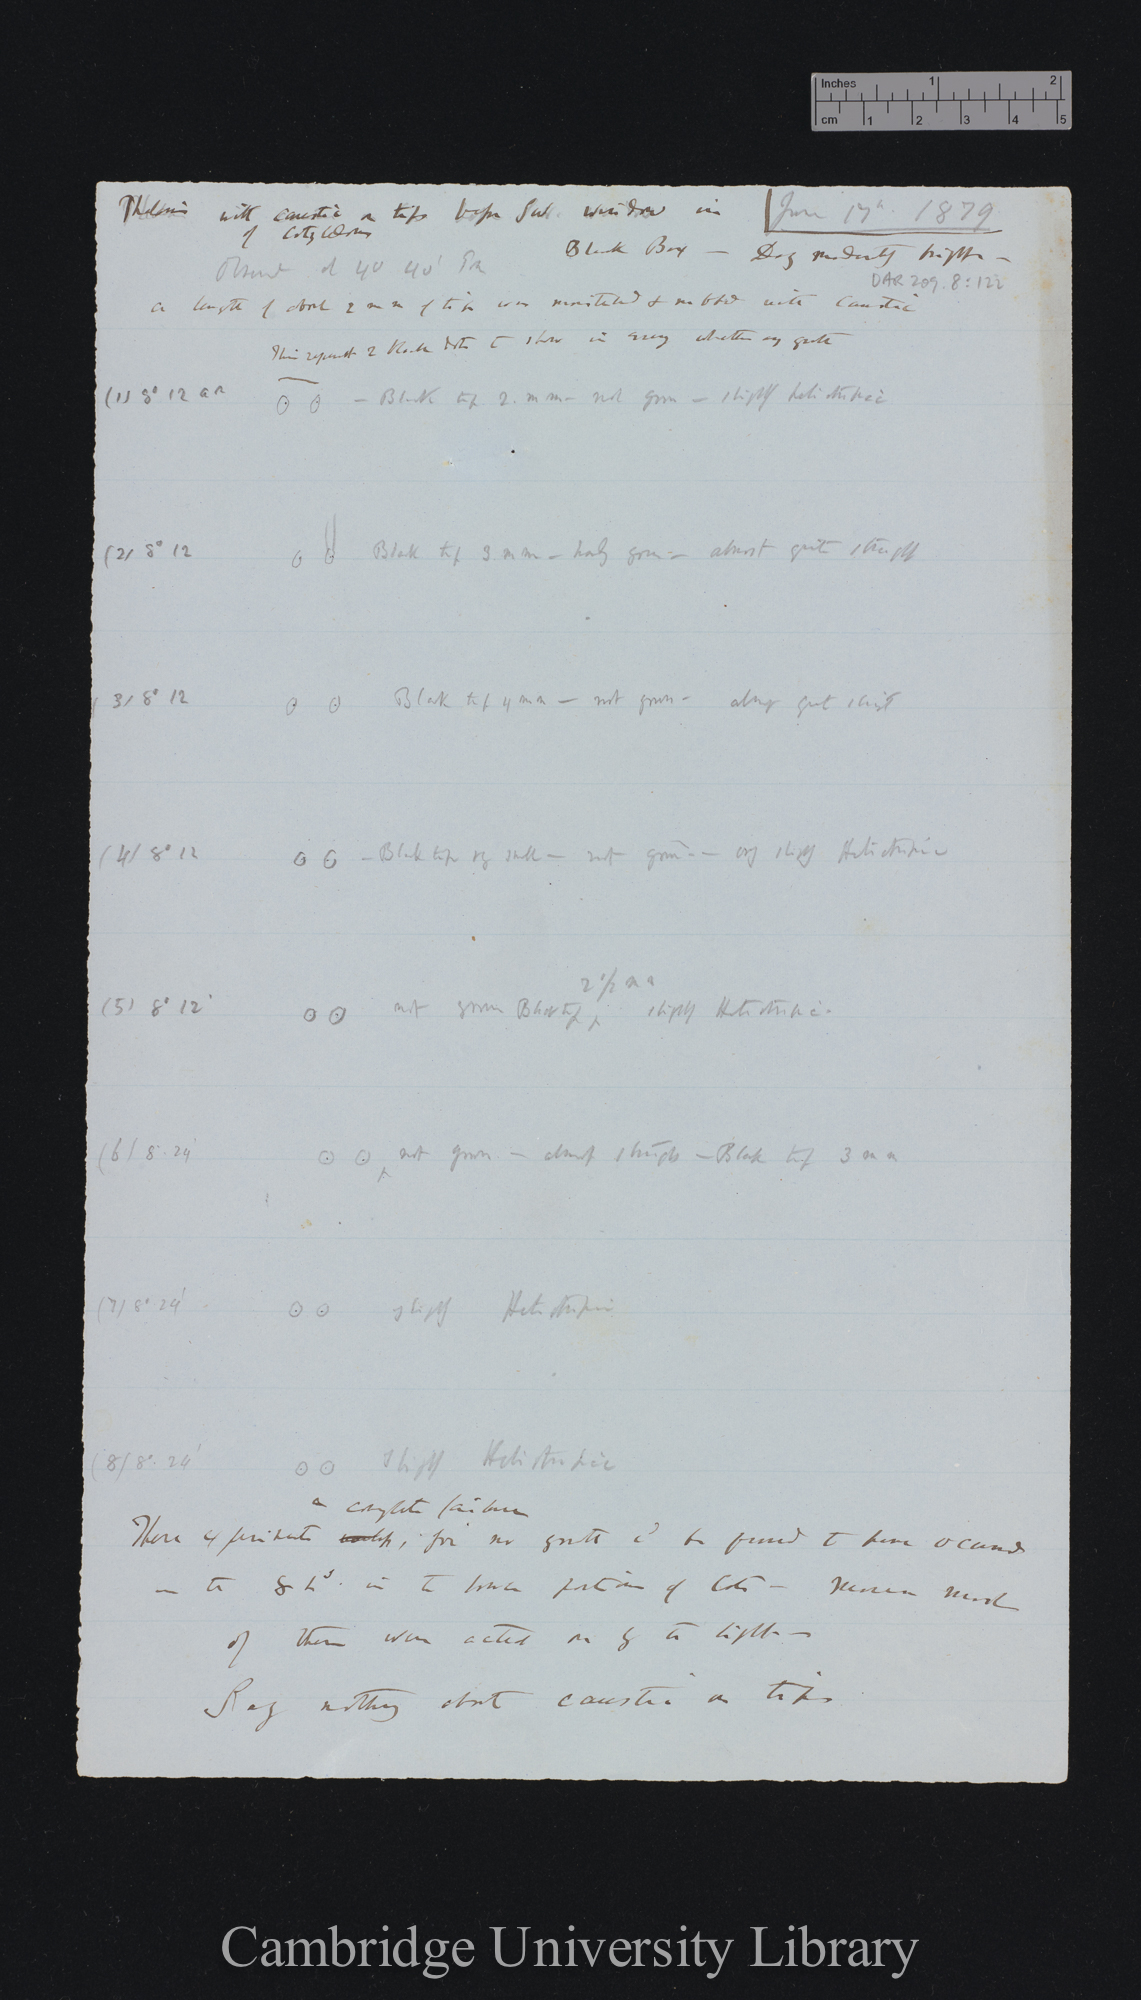 Inches 1 2
cm 1 2 3 4 5
Phalaris with caustic on tips before S.W. window in June 17th. 1879
of cotyledons
Black Box — Day moderately bright —
Observed at 4° 40' P.m
DAR 209.8:122
a length of about 2 mm of tip was moistened & rubbed with caustic
This represent 2 black dots to show in every whether any growth
(1) 8° 12 am — Black tip 2. mm — not grown — slightly heliotropic
(2) 8° 12 Black tip 3 mm — hardly grown — almost quite straight
(3) 8° 12 Black tip 4 mm — not grown — almost quite straight
(4) 8° 12 — Black tip very small — not grown — very slightly Heliotropic
2 1/2 mm
(5) 8° 12' not grown Black tip slightly Heliotropic.
(6) 8. 24' not grown — almost straight — Black tip 3 mm
(7) 8° 24' slightly Heliotropic
(8) 8°. 24' slightly Heliotropic
a complete failure
These experiments; for no growth cd be found to have occurred
in the 8 hs. in the lower portion of Cots — Moreover most
of them were acted on by the light —
Say nothing about caustic on tips
Cambridge University Library